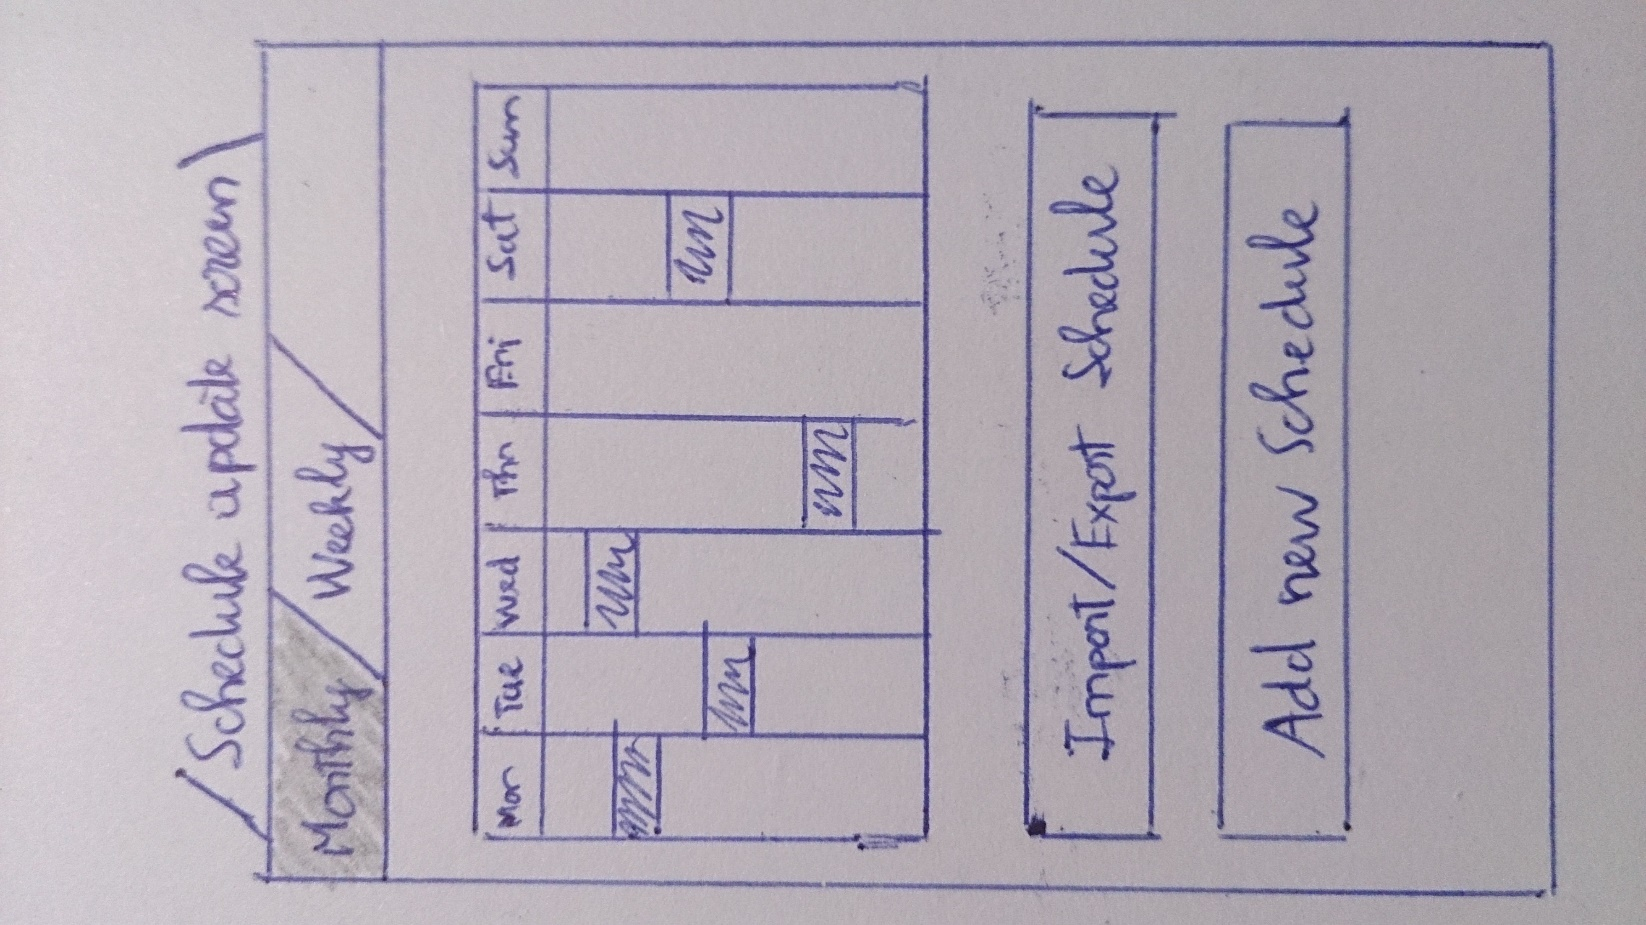 Schedule update screen
Monthly Weekly
Mon Tue Wed Thr Fri Sat Sun
Import/Export Schedule
Add new Schedule